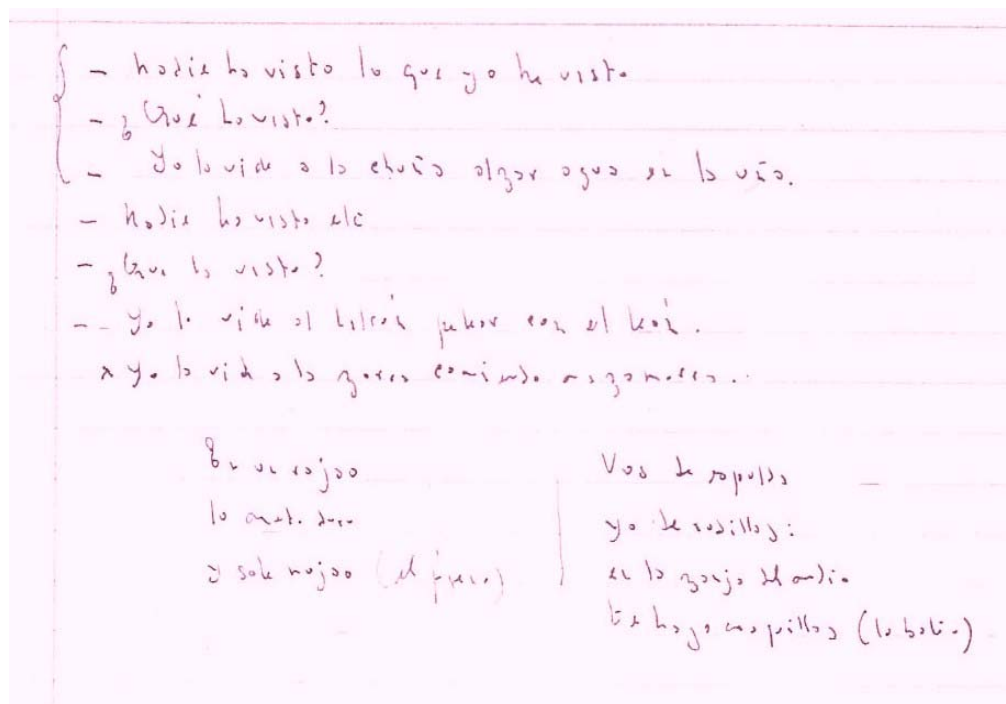 - Nadie ha visto lo que yo he visto
- ¿Qué ha visto?
- Yo la vide a la chuña alzar agua en la uña.
- Nadie ha visto etc
- ¿Que ha visto?
- Yo lo vide al halcón pelear con el león.
Yo la vide a la zorra comiendo mazamorra.
En un rajao
lo meto duro
y sale mojao (el )
Vos de espalda
yo de rodillas:
en la zanja del medio
te hago cosquillas (la batea)